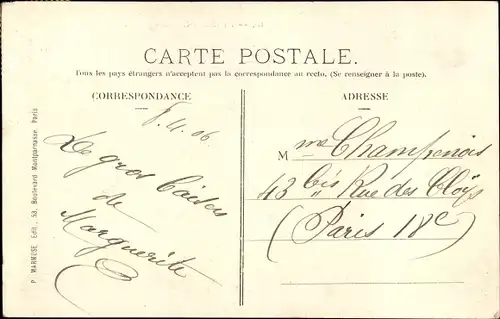 CARTE POSTALE.
Tous les pays étrangers n'acceptent pas la correspondance au recto. (Se renseigner à la poste).
CORRESPONDANCE
.4.06
De gros baisers
de
Marguerite
P. MARMUSE, Edit., 53, Boulevard Montparnasse, Paris
ADRESSE
Mme Champenois
43 bis Rue des Cloÿs
(Paris 18e(